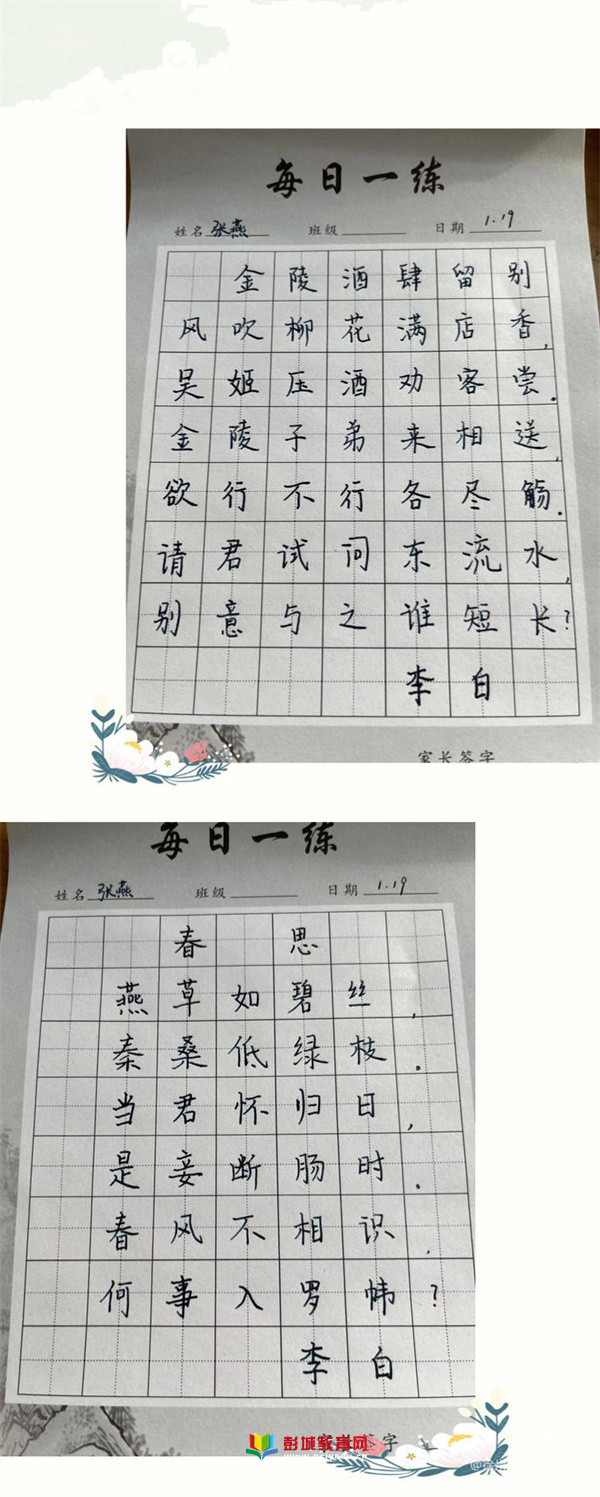 每日一练
姓名 张燕 班级 日期 1.19
金陵酒肆留别
风吹柳花满店香,
吴姬压酒劝客尝.
金陵子弟来相送,
欲行不行各尽觞.
请君试问东流水,
别意与之谁短长?
李白
家长签字
每日一练
姓名 张燕 班级 日期 1.19
春思
燕草如碧丝,
秦桑低绿枝.
当君怀归日,
是妾断肠时.
春风不相识,
何事入罗帏?
李白
签字
彭城教育网